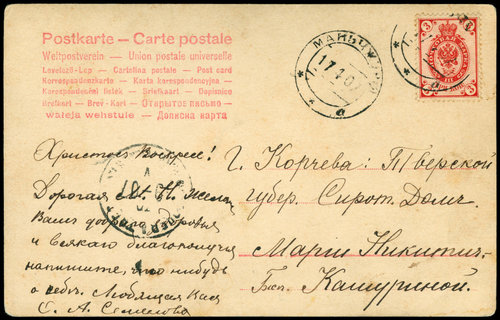 Postkarte – Carte postale
Weltpostverein – Union postale universelle
Levelező-Lap – Cartolina postale – Post card
Korrespondenzkarte – Karta korespondencyjna,
Korespondenční lístek – Briefkaart – Dopisnice
Brefkort – Brev-Kort – Открытое письмо –
waleja wehstule – Дописна карта
МАНЬЧЖ
17 1 07
а
3
3
Христосъ Воскресе!
Дорогая М. Н. желаю
Вамъ добраго здоровья
и всякаго благополучія
напишите, что нибудь
о себѣ. Любящая Васъ
С. А. Семенова
07
Г. Корчева: Тверской
губер. Сирот. Домъ.
Маріи Никитич.
Кашуриной.